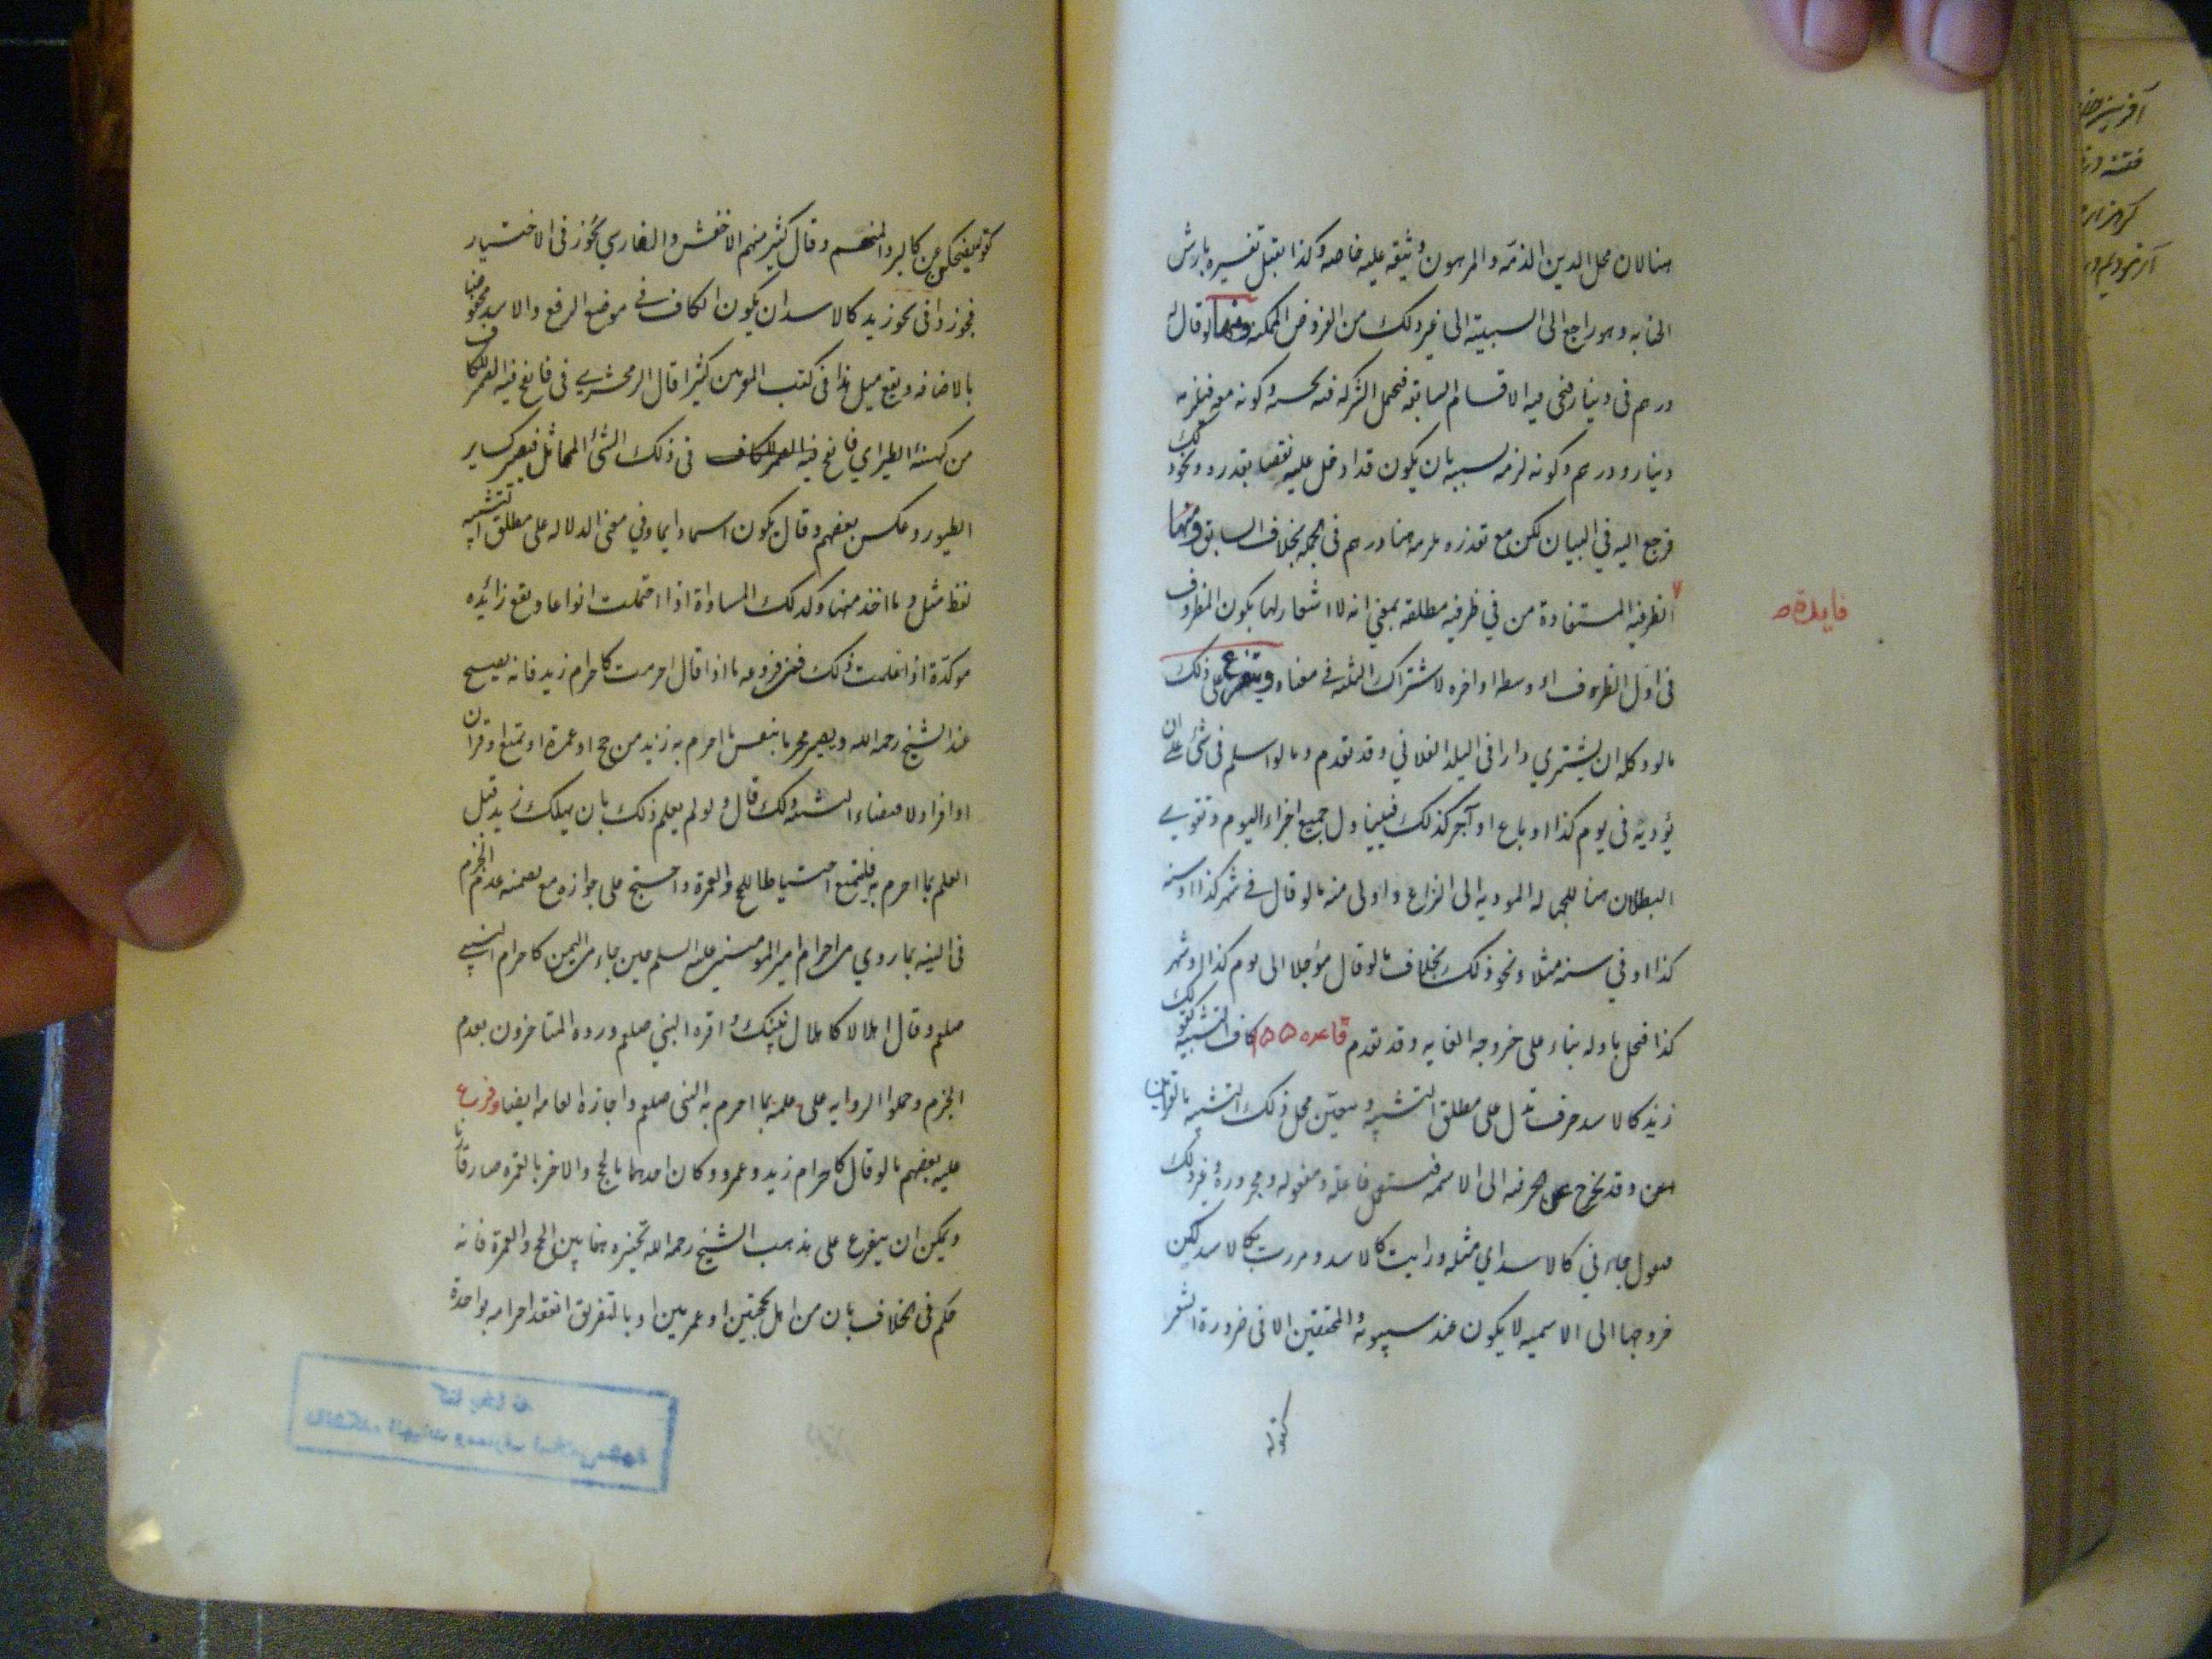 هنا لان محل الدين الذمه والمرهون وثيقه عليه خاصه وكذا يقبل تفسيره بارش
الجنايه وهو راجع الى السببيه الى غير ذلك من الفروض الممكنه ومنها لو قال له
درهم فى دينار فيه الاقسام السابقه فيحمل الشركه وكونه معه فيلزمه
دينار ودرهم وكونه لزمه بسببه بان يكون قد ادخل عليه نقصا بقدره ونحو ذلك
فرجع اليه في البيان لكن مع تعذره يلزمه هنا درهم فى الجمله بخلاف السابق ومنها
فايدة
الظرفيه المستفادة من في ظرفيه مطلقه بمعنى انه لا اشعار لها بكون المظروف
فى اول الظرف او وسطه او اخره لاشتراك الثلثه في معناه ويتفرع على ذلك
ما لو وكله ان يشتري دارا فى البلد الفلاني وقد تقدم وما لو اسلم فى شئ على ان
يؤديه فى يوم كذا او باع او آجر كذلك فيتناول جميع اجزاء اليوم وتقوى
البطلان هنا للجهاله الموديه الى النزاع واولى منه ما لو قال في شهر كذا او سنه
كذا او في سنه مثلا ونحو ذلك بخلاف ما لو قال مؤجلا الى يوم كذا او شهر
كذا فيحل باوله بناء على خروجه الغايه وقد تقدم قاعده ۵۵ا كاف التشبيه كقولك
زيد كالاسد حرف تدل على مطلق التشبيه ويتعين محل ذلك التشبيه بالقراين
وقد يخرج عن الحرفيه الى الاسميه فتستعمل فاعلة ومفعوله ومجرورة وغير ذلك
فيقول جاءني كالاسد اي مثله ورايت كالاسد ومررت بكالاسد لكن
خروجها الى الاسميه لا يكون عند سيبويه والمحققين الا فى ضرورة الشعر
كقوله
كقوله يضحكن عن كالبرد المنهم وقال كثير منهم الاخفش والفارسي يجوز فى الاختيار
فجوزوا فى نحو زيد كالاسد ان يكون الكاف في موضع الرفع والاسد مخفوضا
بالاضافه ويقع مثل هذا فى كتب المعربين كثيرا قال الزمخشري فى فانفخ فيه الضمير للكاف
من كهيئة الطير اي فانفخ فيه الضمير للكاف فى ذلك الشئ المماثل فيصير كساير
الطيور وعكس بعضهم وقال يكون اسما دايما وفي معنى الدلاله على مطلق التشبيه
لفظ مثل وما اخذ منها وكذلك المساواة اذا احتملت انواعا ويقع زائده
موكدة اذا علمت ذلك فمن فروعه ما اذا قال احرمت كاحرام زيد فانه يصح
عند الشيخ رحمه الله ويصير محرما بنفس ما احرم به زيد من حج او عمرة او تمتع او قران
او افراد لاقتضاء التشبيه ذلك قال ولو لم يعلم ذلك بان يهلك زيد قبل
العلم بما احرم به فليتمتع احتياطا للحج والعمرة واحتج على جوازه مع تضمنه عدم الجزم
فى النيه بما روي من احرام امير المومنين عليه السلم حين جاء من اليمن كاحرام النبي
صلعم وقال اهلالا كاهلال نبيك واقره النبي صلعم ورده المتاخرون بعدم
الجزم وحملوا الروايه على علمه بما احرم به النبى صلعم واجازه العامه ايضا وفرع
عليه بعضهم ما لو قال كاحرام زيد وعمرو وكان احدهما بالحج والاخر بالعمرة صار قارنا
ويمكن ان يتفرع على مذهب الشيخ رحمه الله تخييره هنا بين الحج والعمرة فانه
حكم فى الخلاف بان من اهل بحجتين او عمرتين او بالتفريق انعقد احرامه بواحدة